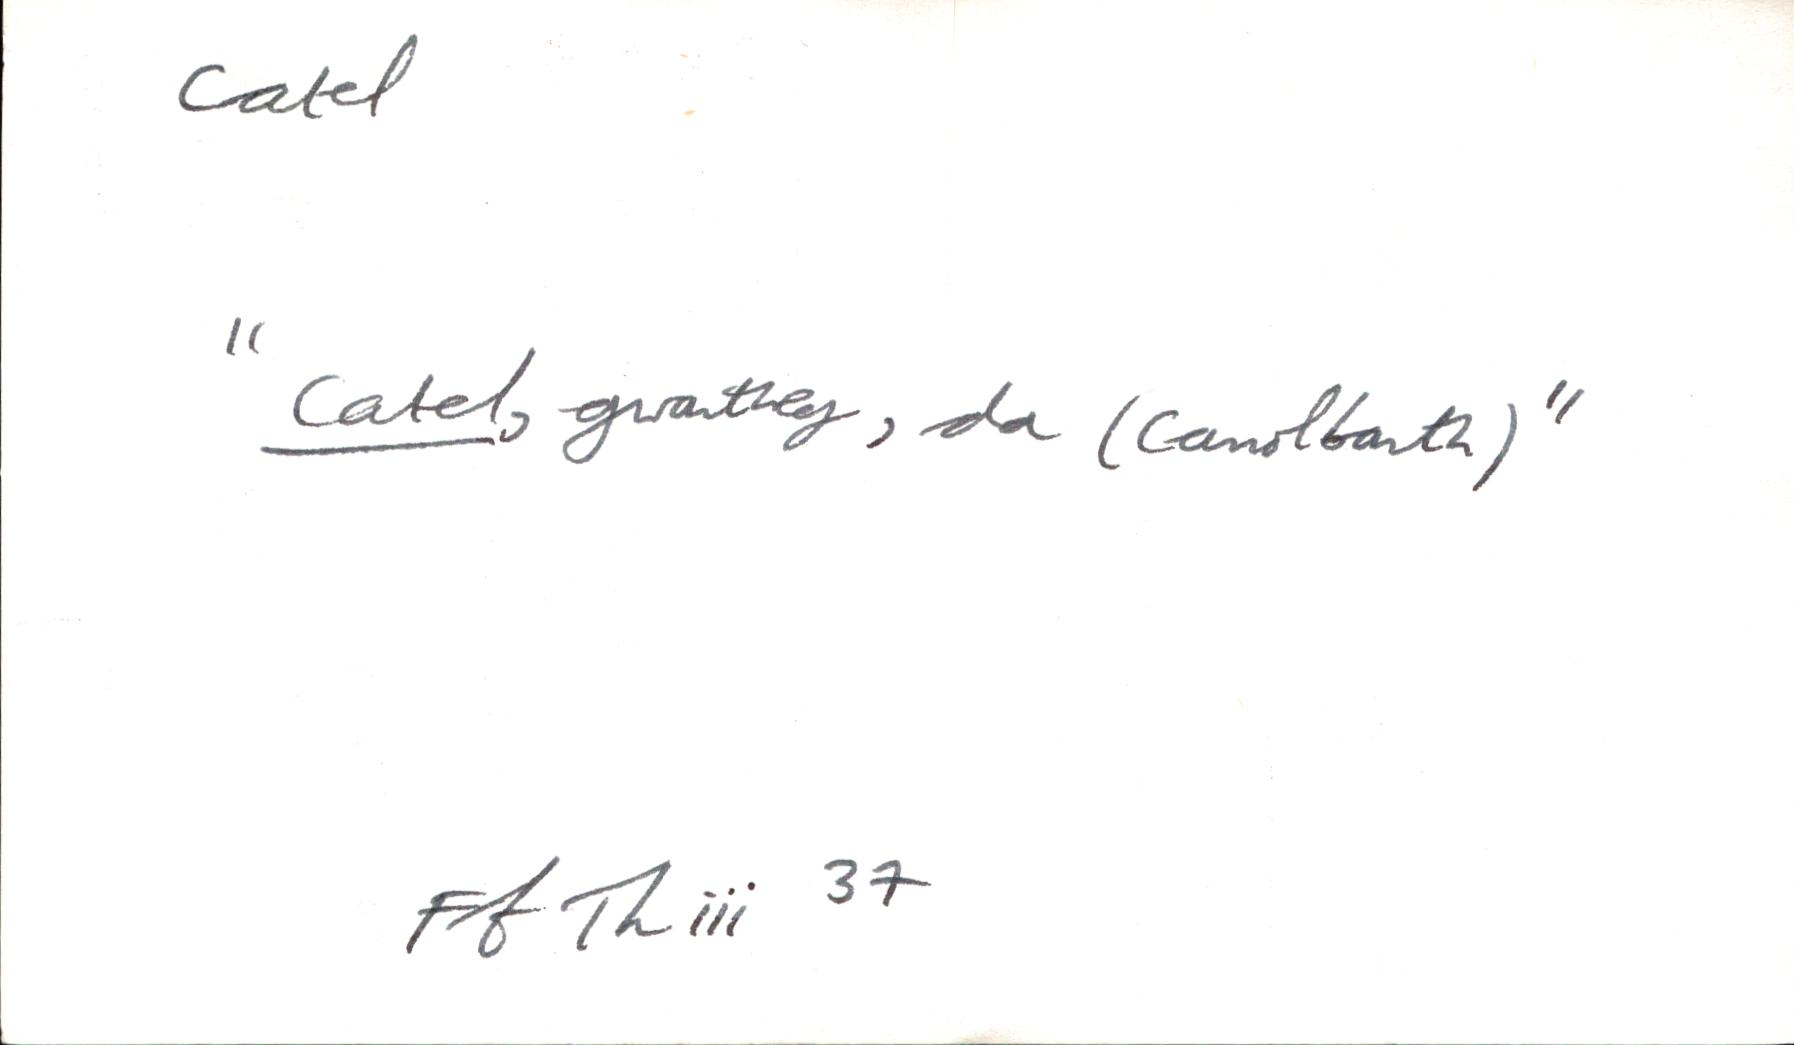 Catel
"Catel, gwartheg, da (Canolbarth)"
Ff Th iii 37